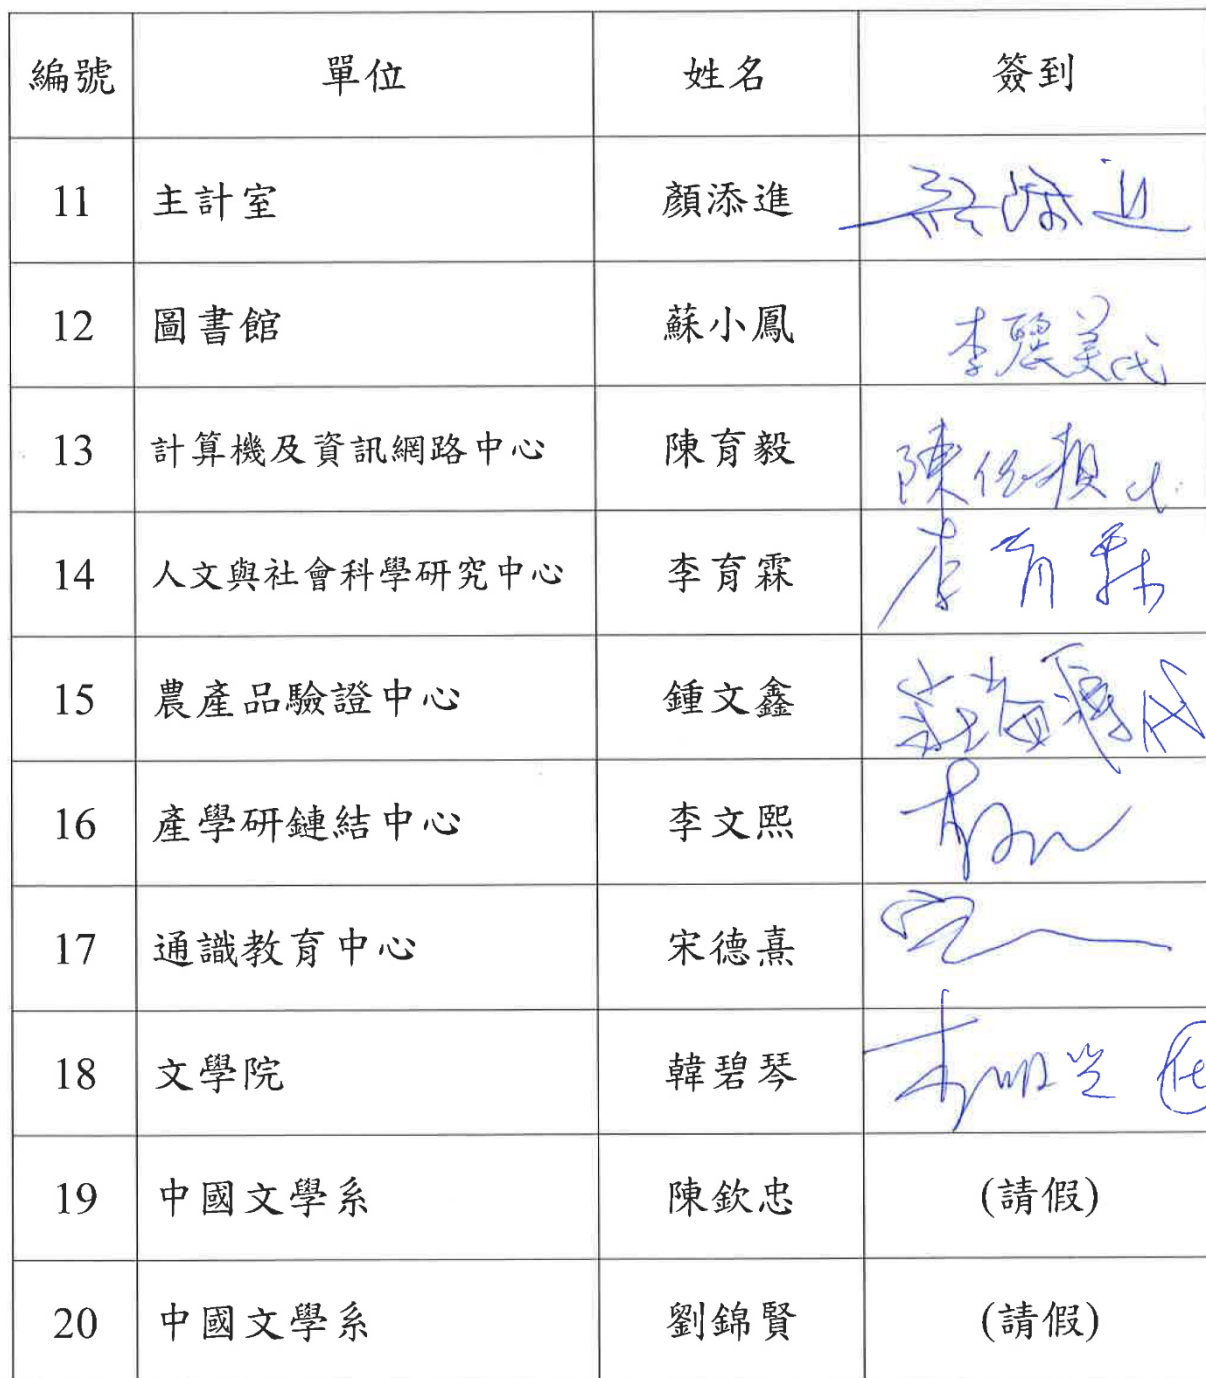 編號 單位 姓名 簽到
11 主計室 顏添進
12 圖書館 蘇小鳳 李麗美代
13 計算機及資訊網路中心 陳育毅 陳 代
14 人文與社會科學研究中心 李育霖 李育霖
15 農產品驗證中心 鍾文鑫 代
16 產學研鏈結中心 李文熙
17 通識教育中心 宋德熹
18 文學院 韓碧琴 代
19 中國文學系 陳欽忠 (請假)
20 中國文學系 劉錦賢 (請假)